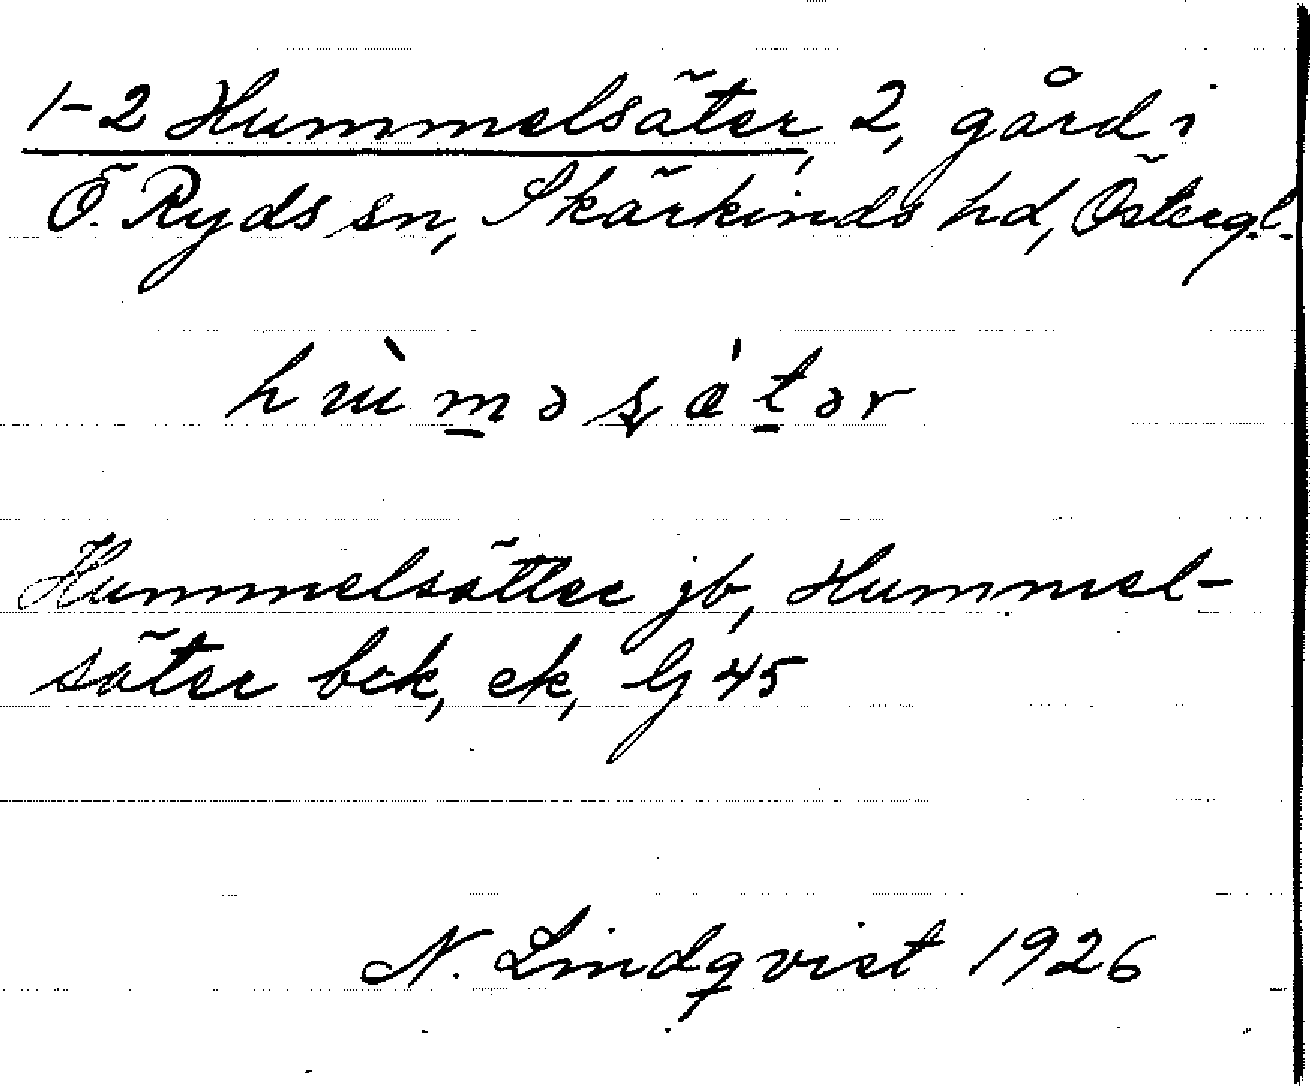 1-2 Hummelsäter, 2, gård i
Ö. Ryds sn, Skärkinds hd, Östergl.
Hummelsätter jb, Hummel-
säter bek, ek, G 45
N. Lindqvist 1926